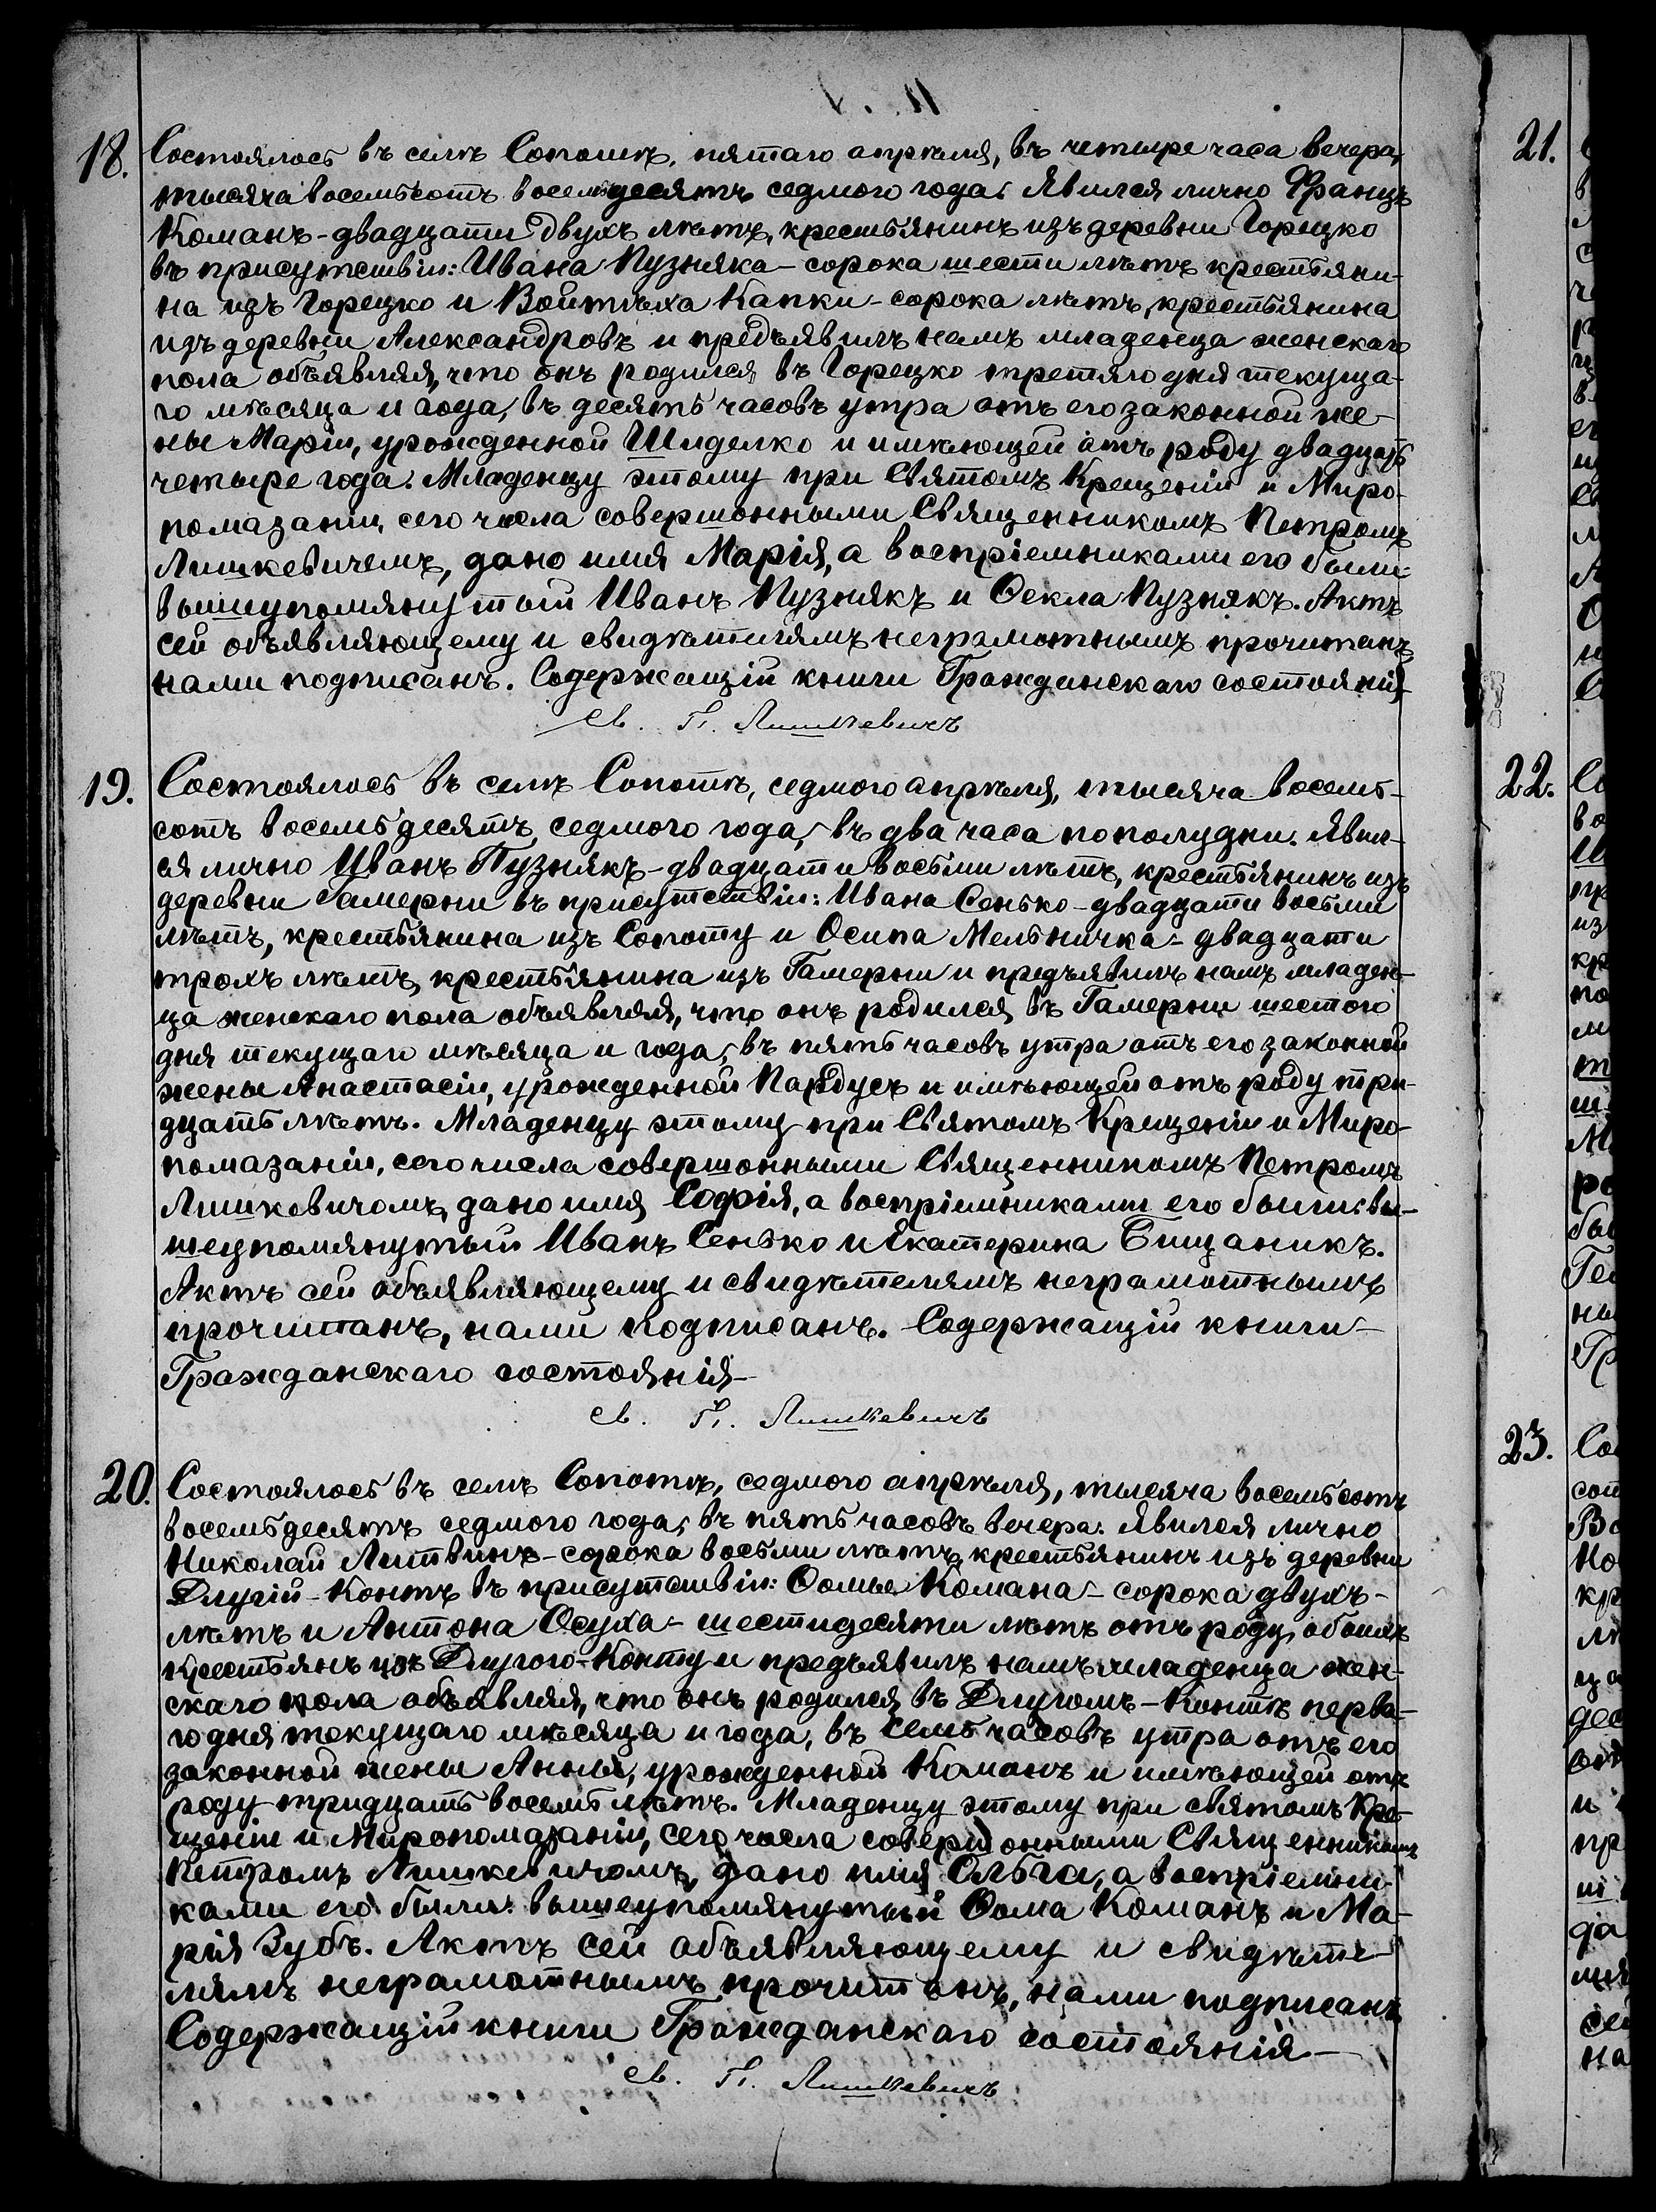 18.
Состоялось въ селѣ Сопотѣ, пятаго апрѣля, въ четыре часа вечера,
тысяча восемьсотъ восемьдесятъ седмого года. Явился лично Францъ
Команъ - двадцати двухъ лѣтъ, крестьянинъ изъ деревни Горецко
въ присутствіи: Ивана Пузняка - сорока шести лѣтъ крестьяни-
на изъ Горецко и Войтѣха Капки - сорока лѣтъ, крестьянина
изъ деревни Александровъ и предъявилъ намъ младенца женскаго
пола объявляя, что онъ родился въ Горецко третяго дня текуща-
го мѣсяца и года, въ десять часовъ утра отъ его законной же-
ны Маріи, урожденной Шиделко и имѣющей отъ роду двадцать
четыре года. Младенцу этому при Святомъ Крещеніи и Миро-
помазаніи, сего числа совершонными Священникомъ Петромъ
Лишкевичемъ, дано имя Марія, а воспріемниками его были:
вышеупомянутый Иванъ Пузнякъ и Ѳекла Пузнякъ. Актъ
сей объявляющему и свидѣтелямъ неграмотнымъ прочитанъ,
нами подписанъ. Содержащій книги Гражданскаго состоянія
Св. П. Лишкевичъ
19.
Состоялось въ селѣ Сопотѣ, седмого апрѣля, тысяча восемь-
сотъ восемьдесятъ седмого года, въ два часа пополудни. Явил-
ся лично Иванъ Пузнякъ - двадцати восьми лѣтъ, крестьянинъ изъ
деревни Гамерни въ присутствіи: Ивана Сенько - двадцати восьми
лѣтъ, крестьянина изъ Сопоту и Осипа Мельничка - двадцати
трохъ лѣтъ, крестьянина изъ Гамерни и предъявилъ намъ младен-
ца женскаго пола объявляя, что онъ родился въ Гамерни шестого
дня текущаго мѣсяца и года, въ пять часовъ утра отъ его законной
жены Анастасіи, урожденной Пардусъ и имѣющей отъ роду три-
дцать лѣтъ. Младенцу этому при Святомъ Крещеніи и Миро-
помазаніи, сего числа совершонными Священникомъ Петромъ
Лишкевичомъ, дано имя Софія, а воспріемниками его были: вы-
шеупомянутый Иванъ Сенько и Екатерина Бищаникъ.
Актъ сей объявляющему и свидѣтелямъ неграмотнымъ
прочитанъ, нами подписанъ. Содержащій книги
Гражданскаго состоянія -
Св. П. Лишкевичъ
20.
Состоялось въ селѣ Сопотѣ, седмого апрѣля, тысяча восемьсотъ
восемьдесятъ седмого года, въ пять часовъ вечера. Явился лично
Николай Литвинъ - сорока восьми лѣтъ, крестьянинъ изъ деревни
Длугій - Контъ въ присутствіи: Ѳомы Комана - сорока двухъ -
лѣтъ и Антона Осуха - шестидесяти лѣтъ отъ роду, обоихъ
крестьянъ изъ Длугого - Конту и предъявилъ намъ младенца жен-
скаго пола объявляя, что онъ родился въ Длугомъ - Контѣ перва-
го дня текущаго мѣсяца и года, въ семь часовъ утра отъ его
законной жены Анны, урожденной Команъ и имѣющей отъ
роду тридцать восемь лѣтъ. Младенцу этому при святомъ Кре-
щеніи и Миропомазаніи, сего числа совершонными Священникомъ
Петромъ Лишкевичомъ, дано имя Ольга, а воспріемни-
ками его были: вышеупомянутый Ѳома Команъ и Ма-
рія Зубъ. Актъ сей объявляющему и свидѣте-
лямъ неграмотнымъ прочитанъ, нами подписанъ
Содержащій книги Гражданскаго состоянія -
Св. П. Лишкевичъ
21.
22.
23.